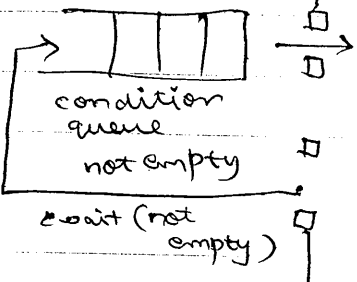 condition
queue
not empty
wait (not
empty)